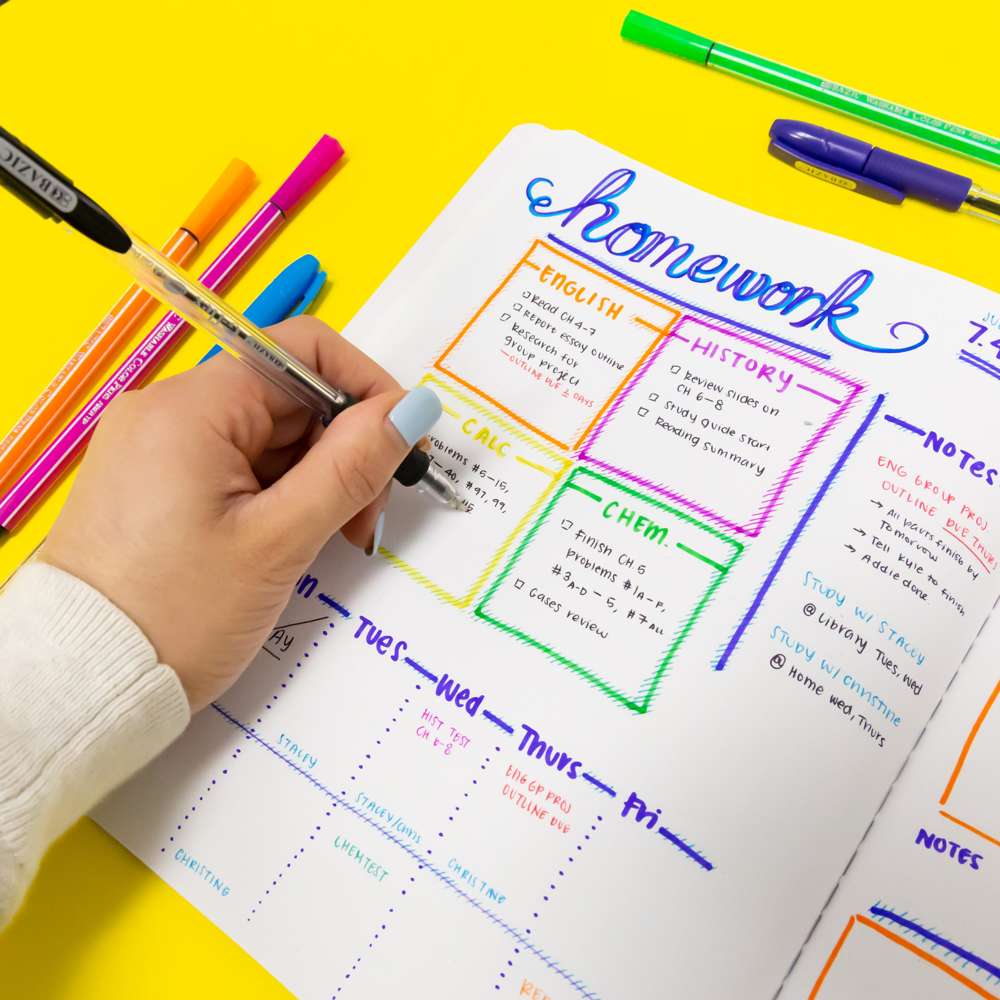 homework
ENGLISH
Read CH 4-7
Report essay outline
Research for
group project
-OUTLINE DUE 2 DAYS
HISTORY
Review slides on
CH 6-8
Study guide start
Reading summary
CALC
#97, 99,
CHEM.
Finish CH 5
problems #1A-F,
#3A-D - 5, #7 All
Gases review
NOTES
ENG GROUP PROJ
OUTLINE DUE THURS
→ All parts finish by
Tomorrow
→ Tell Kyle to finish
→ Addie done
STUDY W/ STACEY
@ Library Tues, Wed
STUDY W/ Christine
@ Home Wed, Thurs
Tues
Wed
Thurs
Fri
HIST TEST
CH 6-8
ENG GP PROJ
OUTLINE DUE
STACEY
STACEY/CHRIS
CHRISTINE
CHRISTING
CHEM TEST
NOTES
BAZIC
WASHABLE COLOR
BAZIC WASHABLE COLOR
BAZIC